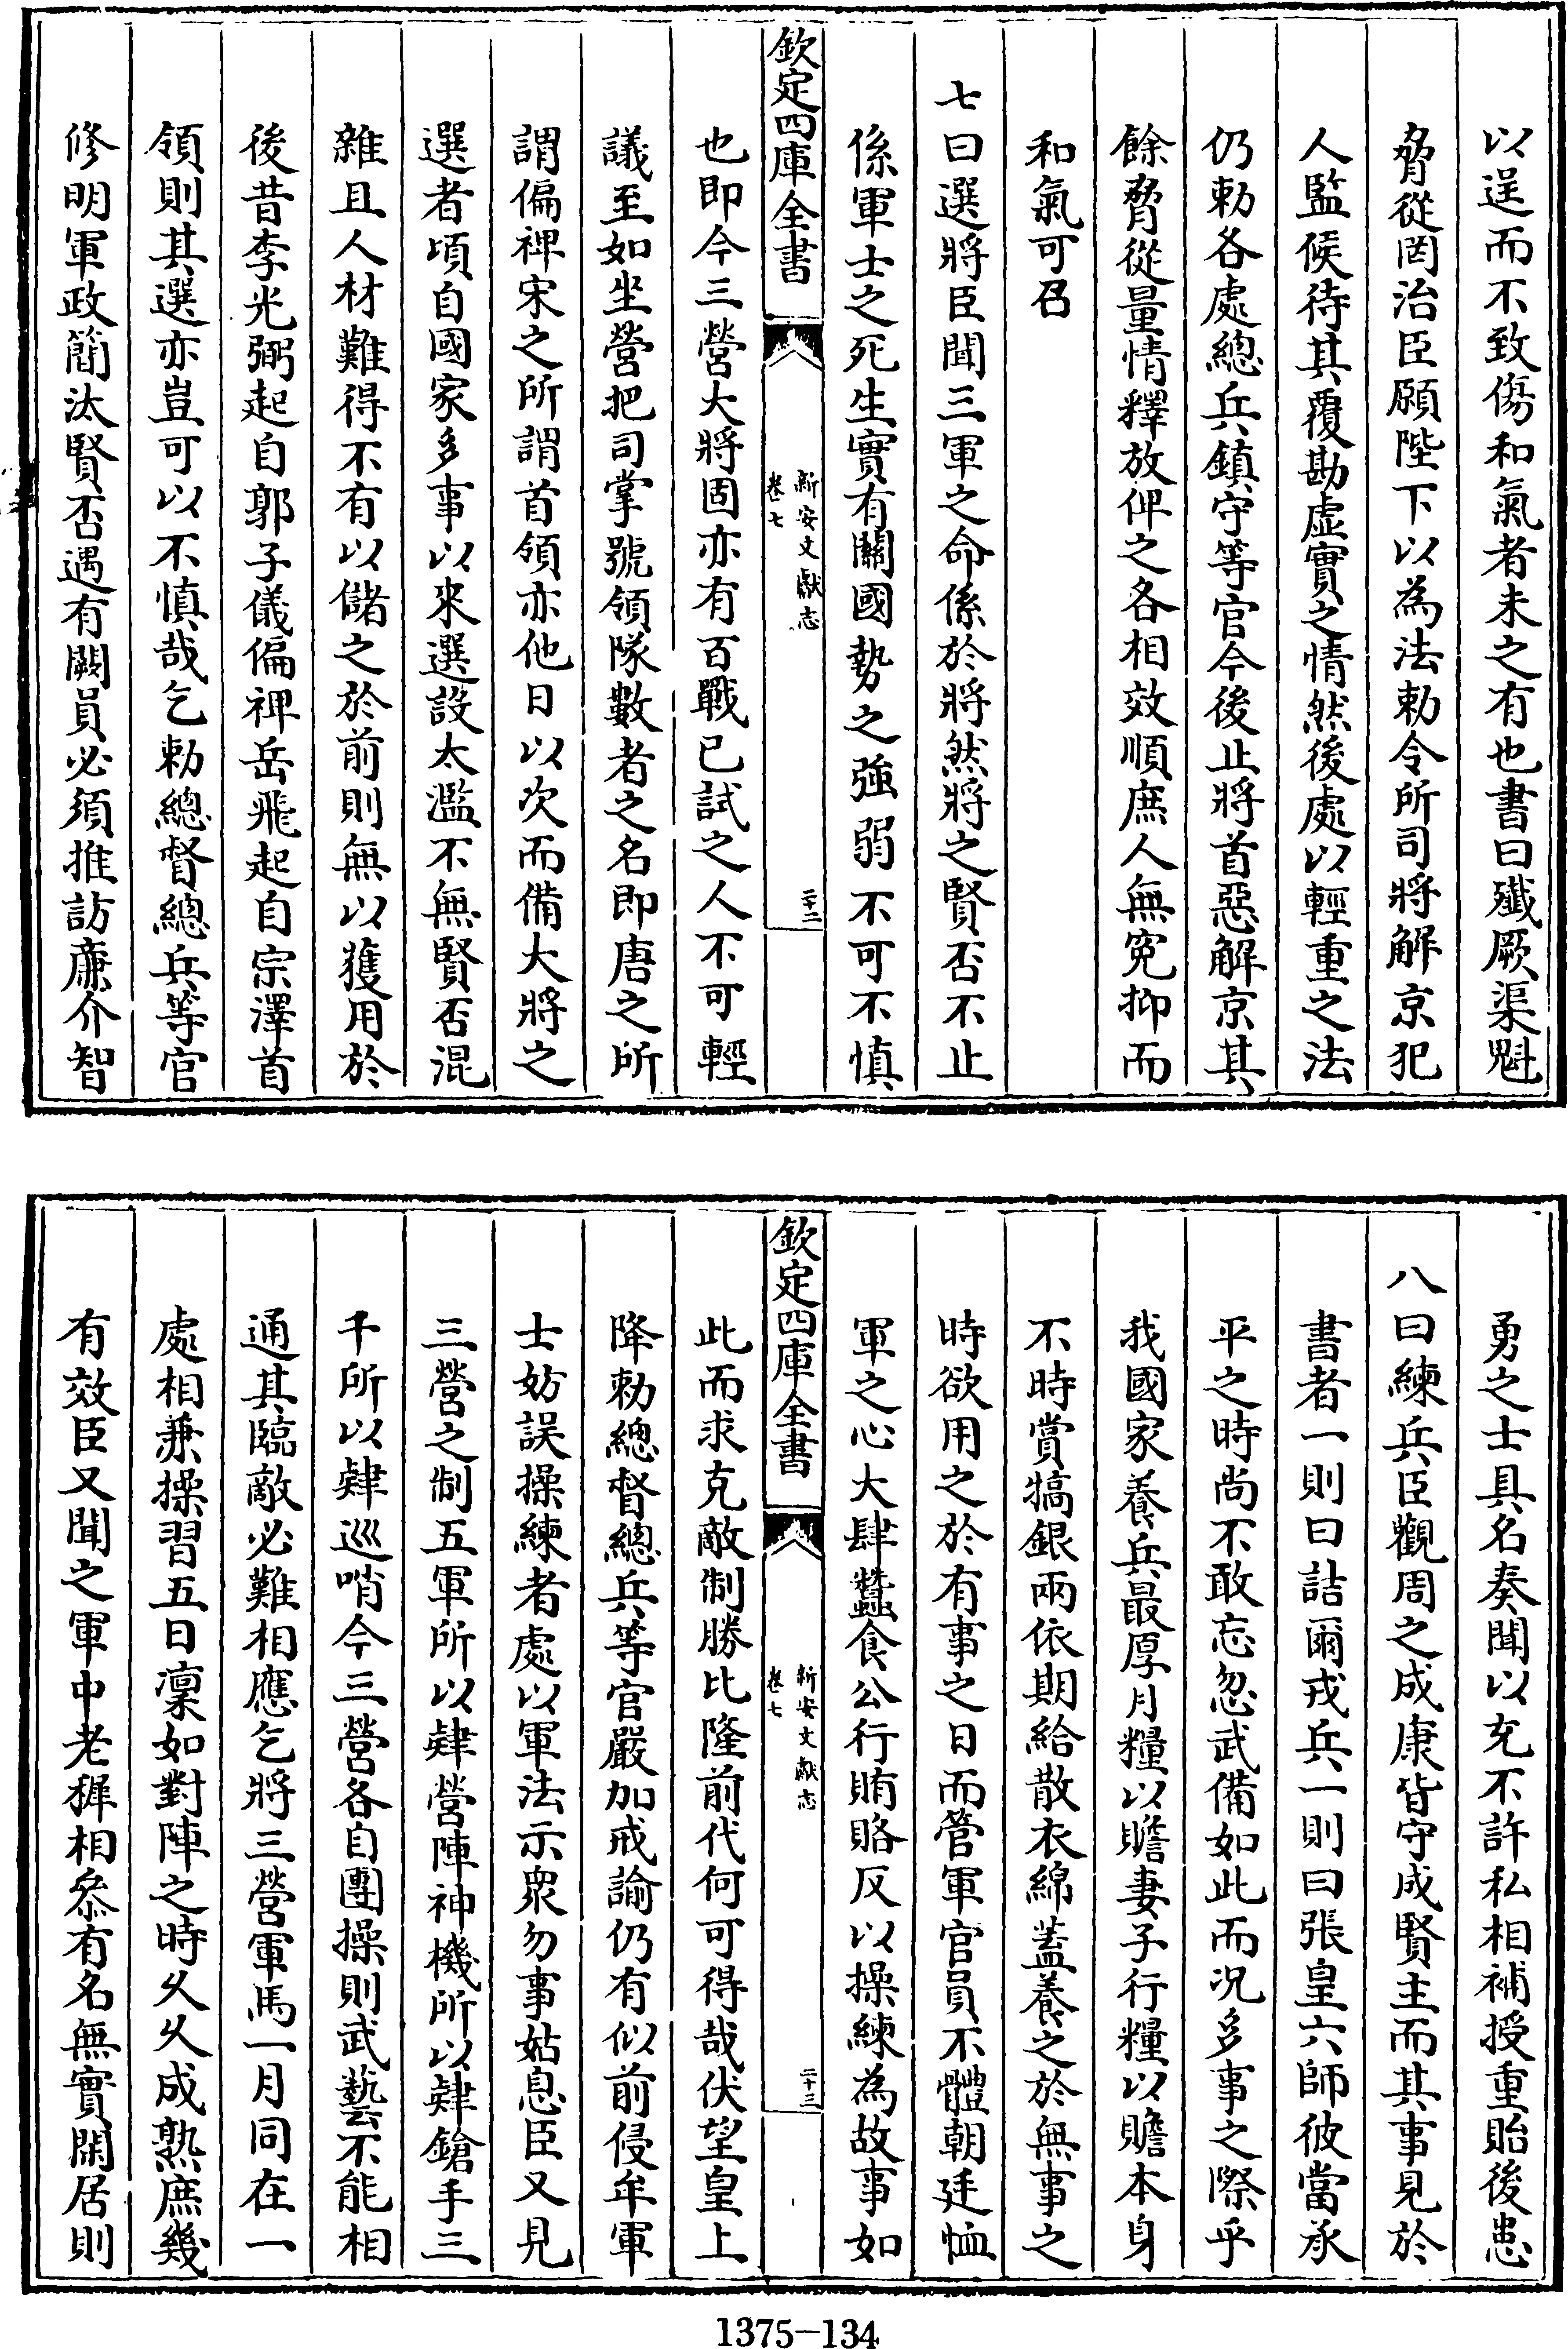 以逞而不致傷和氣者未之有也書曰殲厥渠魁
脅從罔治臣願陛下以為法勅令所司將解京犯
人監候待其覆勘虛實之情然後處以輕重之法
仍勅各處總兵鎮守等官今後止將首惡解京其
餘脅從量情釋放俾之各相效順庶人無寃抑而
和氣可召
七曰選將臣聞三軍之命係於將然將之賢否不止
係軍士之死生實有關國勢之強弱不可不慎
欽定四庫全書
新安文獻志
卷七
二十二
也即今三營大將固亦有百戰已試之人不可輕
議至如坐營把司掌號領隊數者之名即唐之所
謂偏裨宋之所謂首領亦他日以次而備大將之
選者頃自國家多事以來選設太濫不無賢否混
雜且人材難得不有以儲之於前則無以獲用於
後昔李光弼起自郭子儀偏裨岳飛起自宗澤首
領則其選亦豈可以不慎哉乞勅總督總兵等官
修明軍政簡汰賢否遇有闕員必須推訪廉介智
勇之士具名奏聞以充不許私相補授重貽後患
八曰練兵臣觀周之成康皆守成賢主而其事見於
書者一則曰詰爾戎兵一則曰張皇六師彼當承
平之時尚不敢忘忽武備如此而况多事之際乎
我國家養兵最厚月糧以贍妻子行糧以贍本身
不時賞犒銀兩依期給散衣綿蓋養之於無事之
時欲用之於有事之日而管軍官員不體朝廷恤
軍之心大肆蠶食公行賄賂反以操練為故事如
欽定四庫全書
新安文獻志
卷七
二十三
此而求克敵制勝比隆前代何可得哉伏望皇上
降勅總督總兵等官嚴加戒諭仍有似前侵牟軍
士妨誤操練者處以軍法示衆勿事姑息臣又見
三營之制五軍所以肄營陣神機所以肄鎗手三
千所以肄巡哨今三營各自團操則武藝不能相
通其臨敵必難相應乞將三營軍馬一月同在一
處相兼操習五日凜如對陣之時久久成熟庶幾
有效臣又聞之軍中老穉相叅有名無實閑居則
1375—134